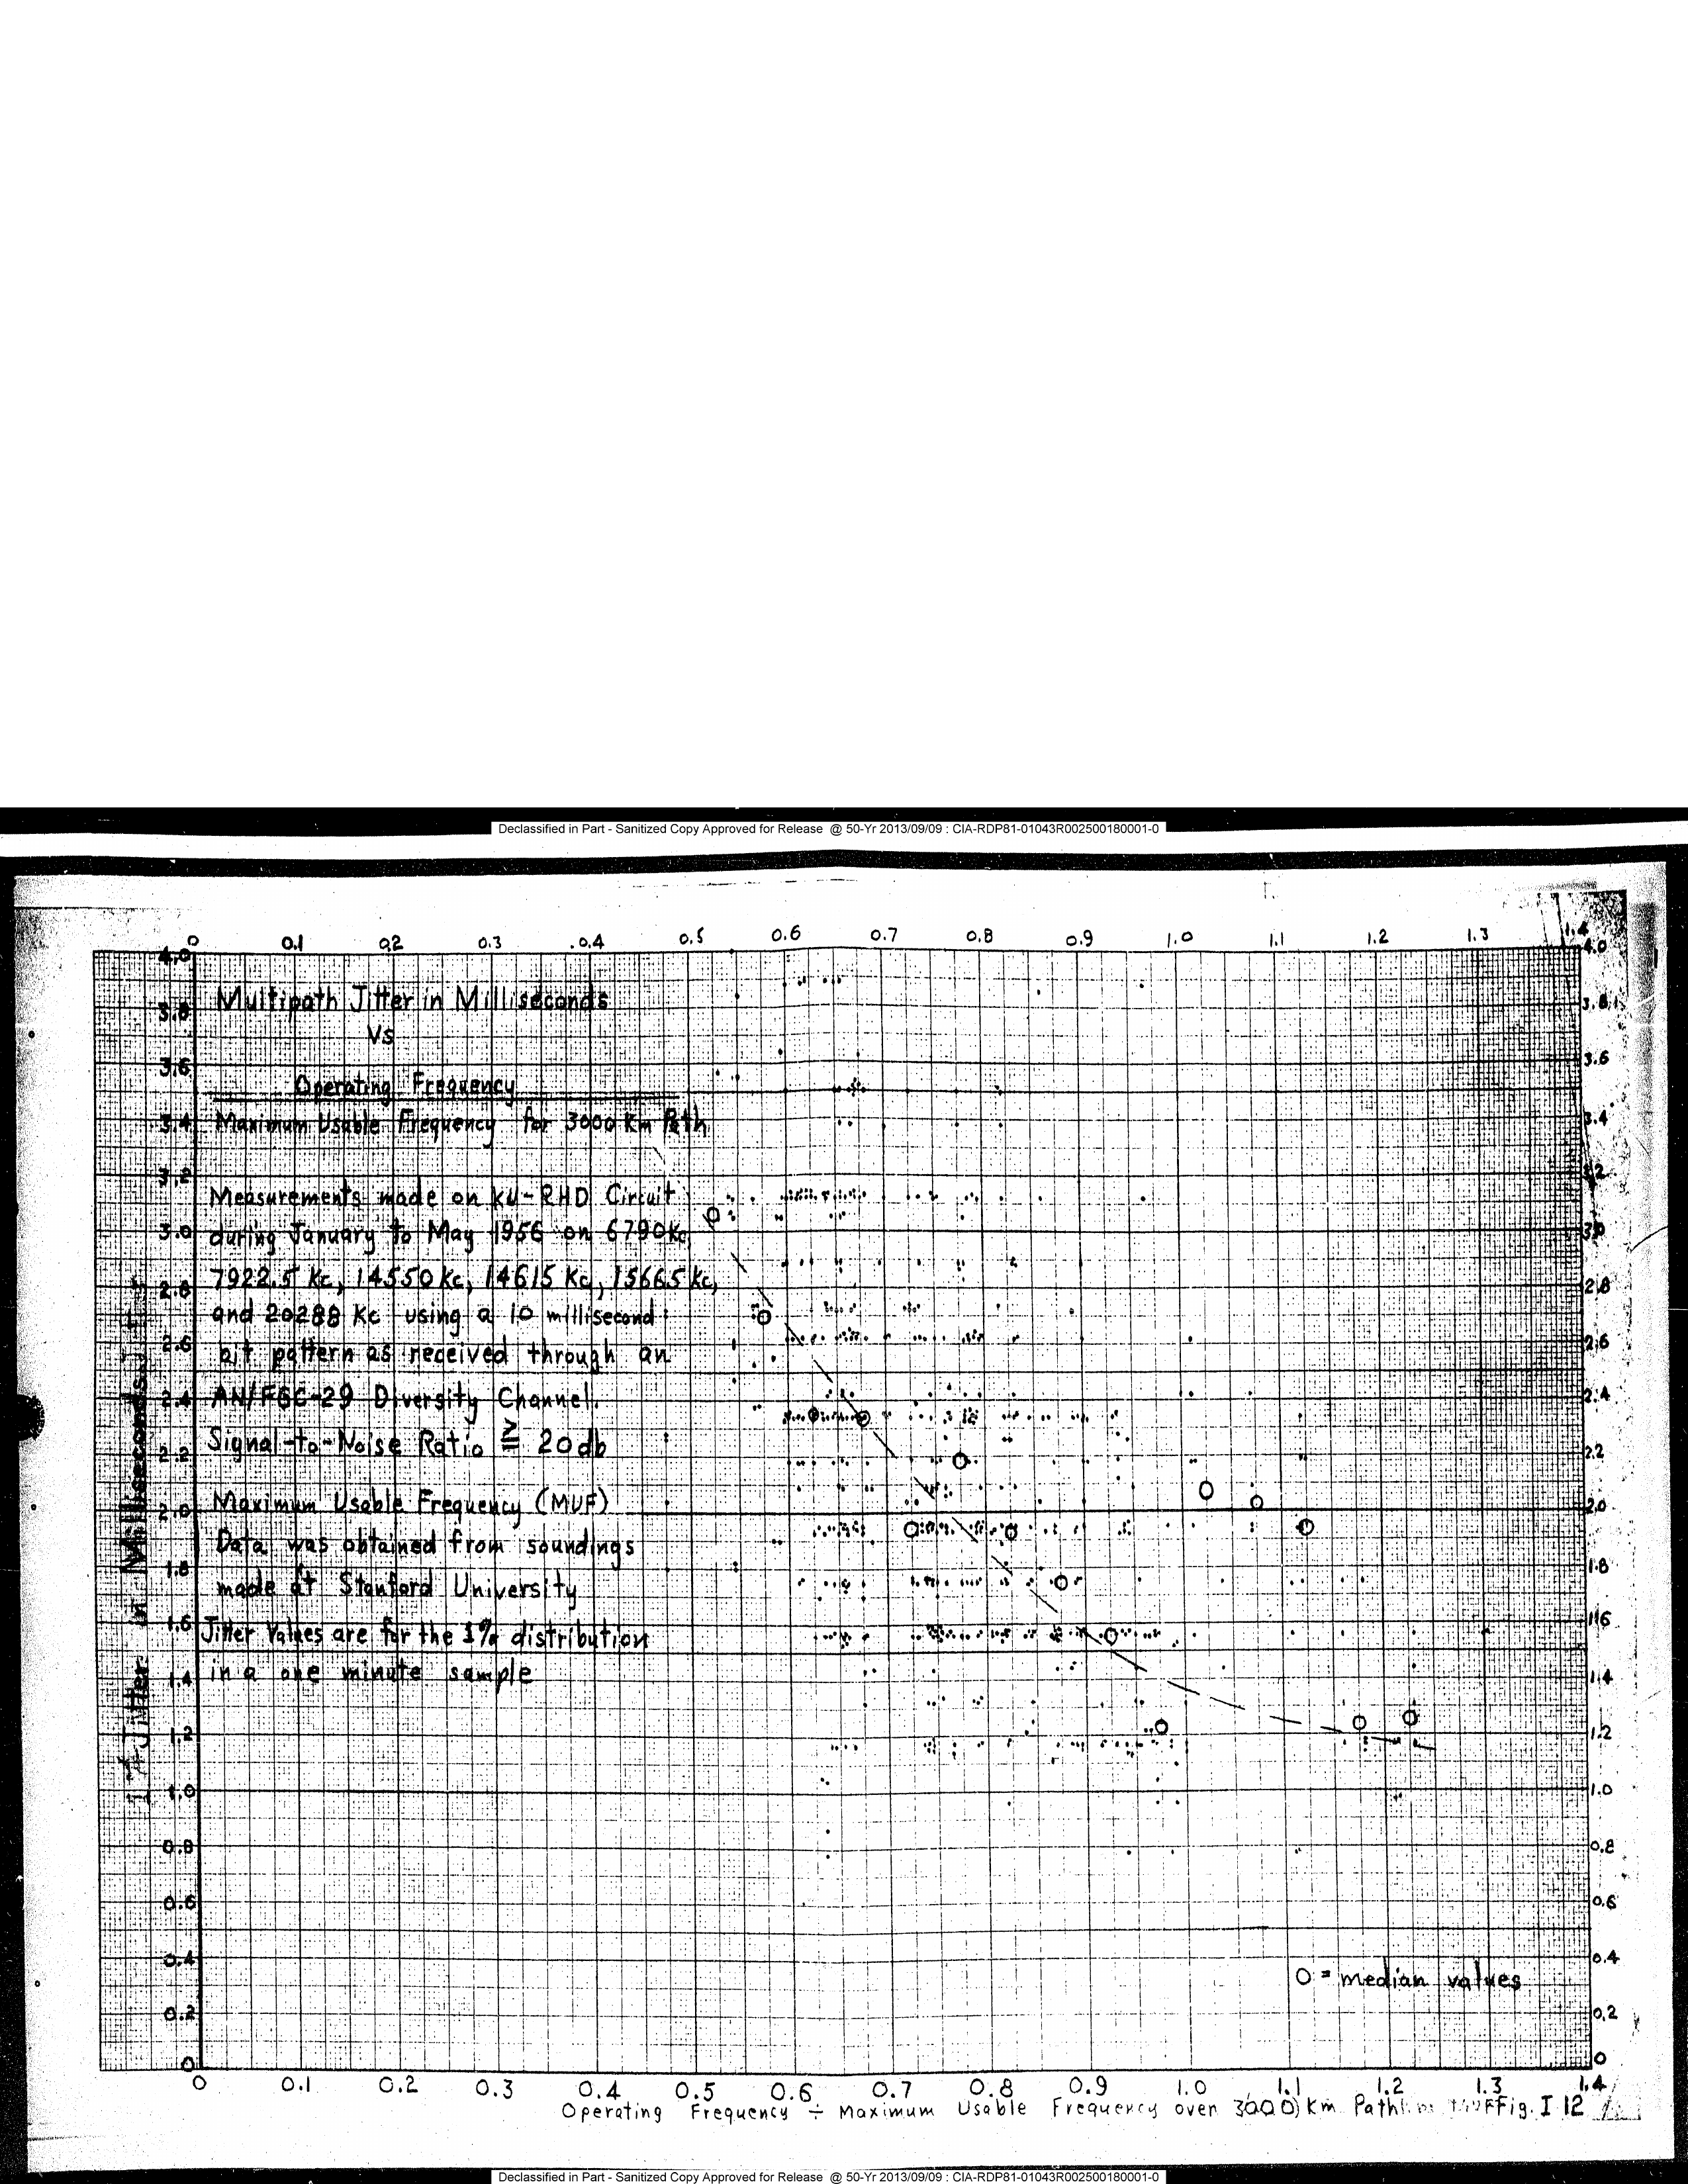 Declassified in Part - Sanitized Copy Approved for Release @ 50-Yr 2013/09/09 : CIA-RDP81-01043R002500180001-0
0 0.1 0.2 0.3 0.4 0.5 0.6 0.7 0.8 0.9 1.0 1.1 1.2 1.3 1.4
4.0 4.0
Multipath Jitter in Milliseconds
3.8 3.8
Vs
3.6 3.6
Operating Frequency
3.4 Maximum Usable Frequency for 3000 Km Path 3.4
3.2 3.2
Measurements made on KU-RHD Circuit
3.0 during January to May 1956 on 6790Kc, 3.0
2.8 7922.5 Kc, 14550 Kc, 14615 Kc, 15665 Kc, 2.8
and 20288 Kc using a 10 millisecond
2.6 bit pattern as received through an 2.6
2.4 AN/FGC-29 Diversity Channel. 2.4
Signal-to-Noise Ratio ≧ 20db
2.2 2.2
Maximum Usable Frequency (MUF)
2.0 2.0
Data was obtained from soundings
1.8 1.8
made at Stanford University
1.6 Jitter Values are for the 1% distribution 1.6
1.4 in a one minute sample 1.4
1.2 1.2
1.0 1.0
0.8 0.8
0.6 0.6
0.4 0.4
O = median values
0.2 0.2
0 0
Jitter in Milliseconds
0 0.1 0.2 0.3 0.4 0.5 0.6 0.7 0.8 0.9 1.0 1.1 1.2 1.3 1.4
Operating Frequency ÷ Maximum Usable Frequency over 3000 Km Path Fig. I 12
Declassified in Part - Sanitized Copy Approved for Release @ 50-Yr 2013/09/09 : CIA-RDP81-01043R002500180001-0